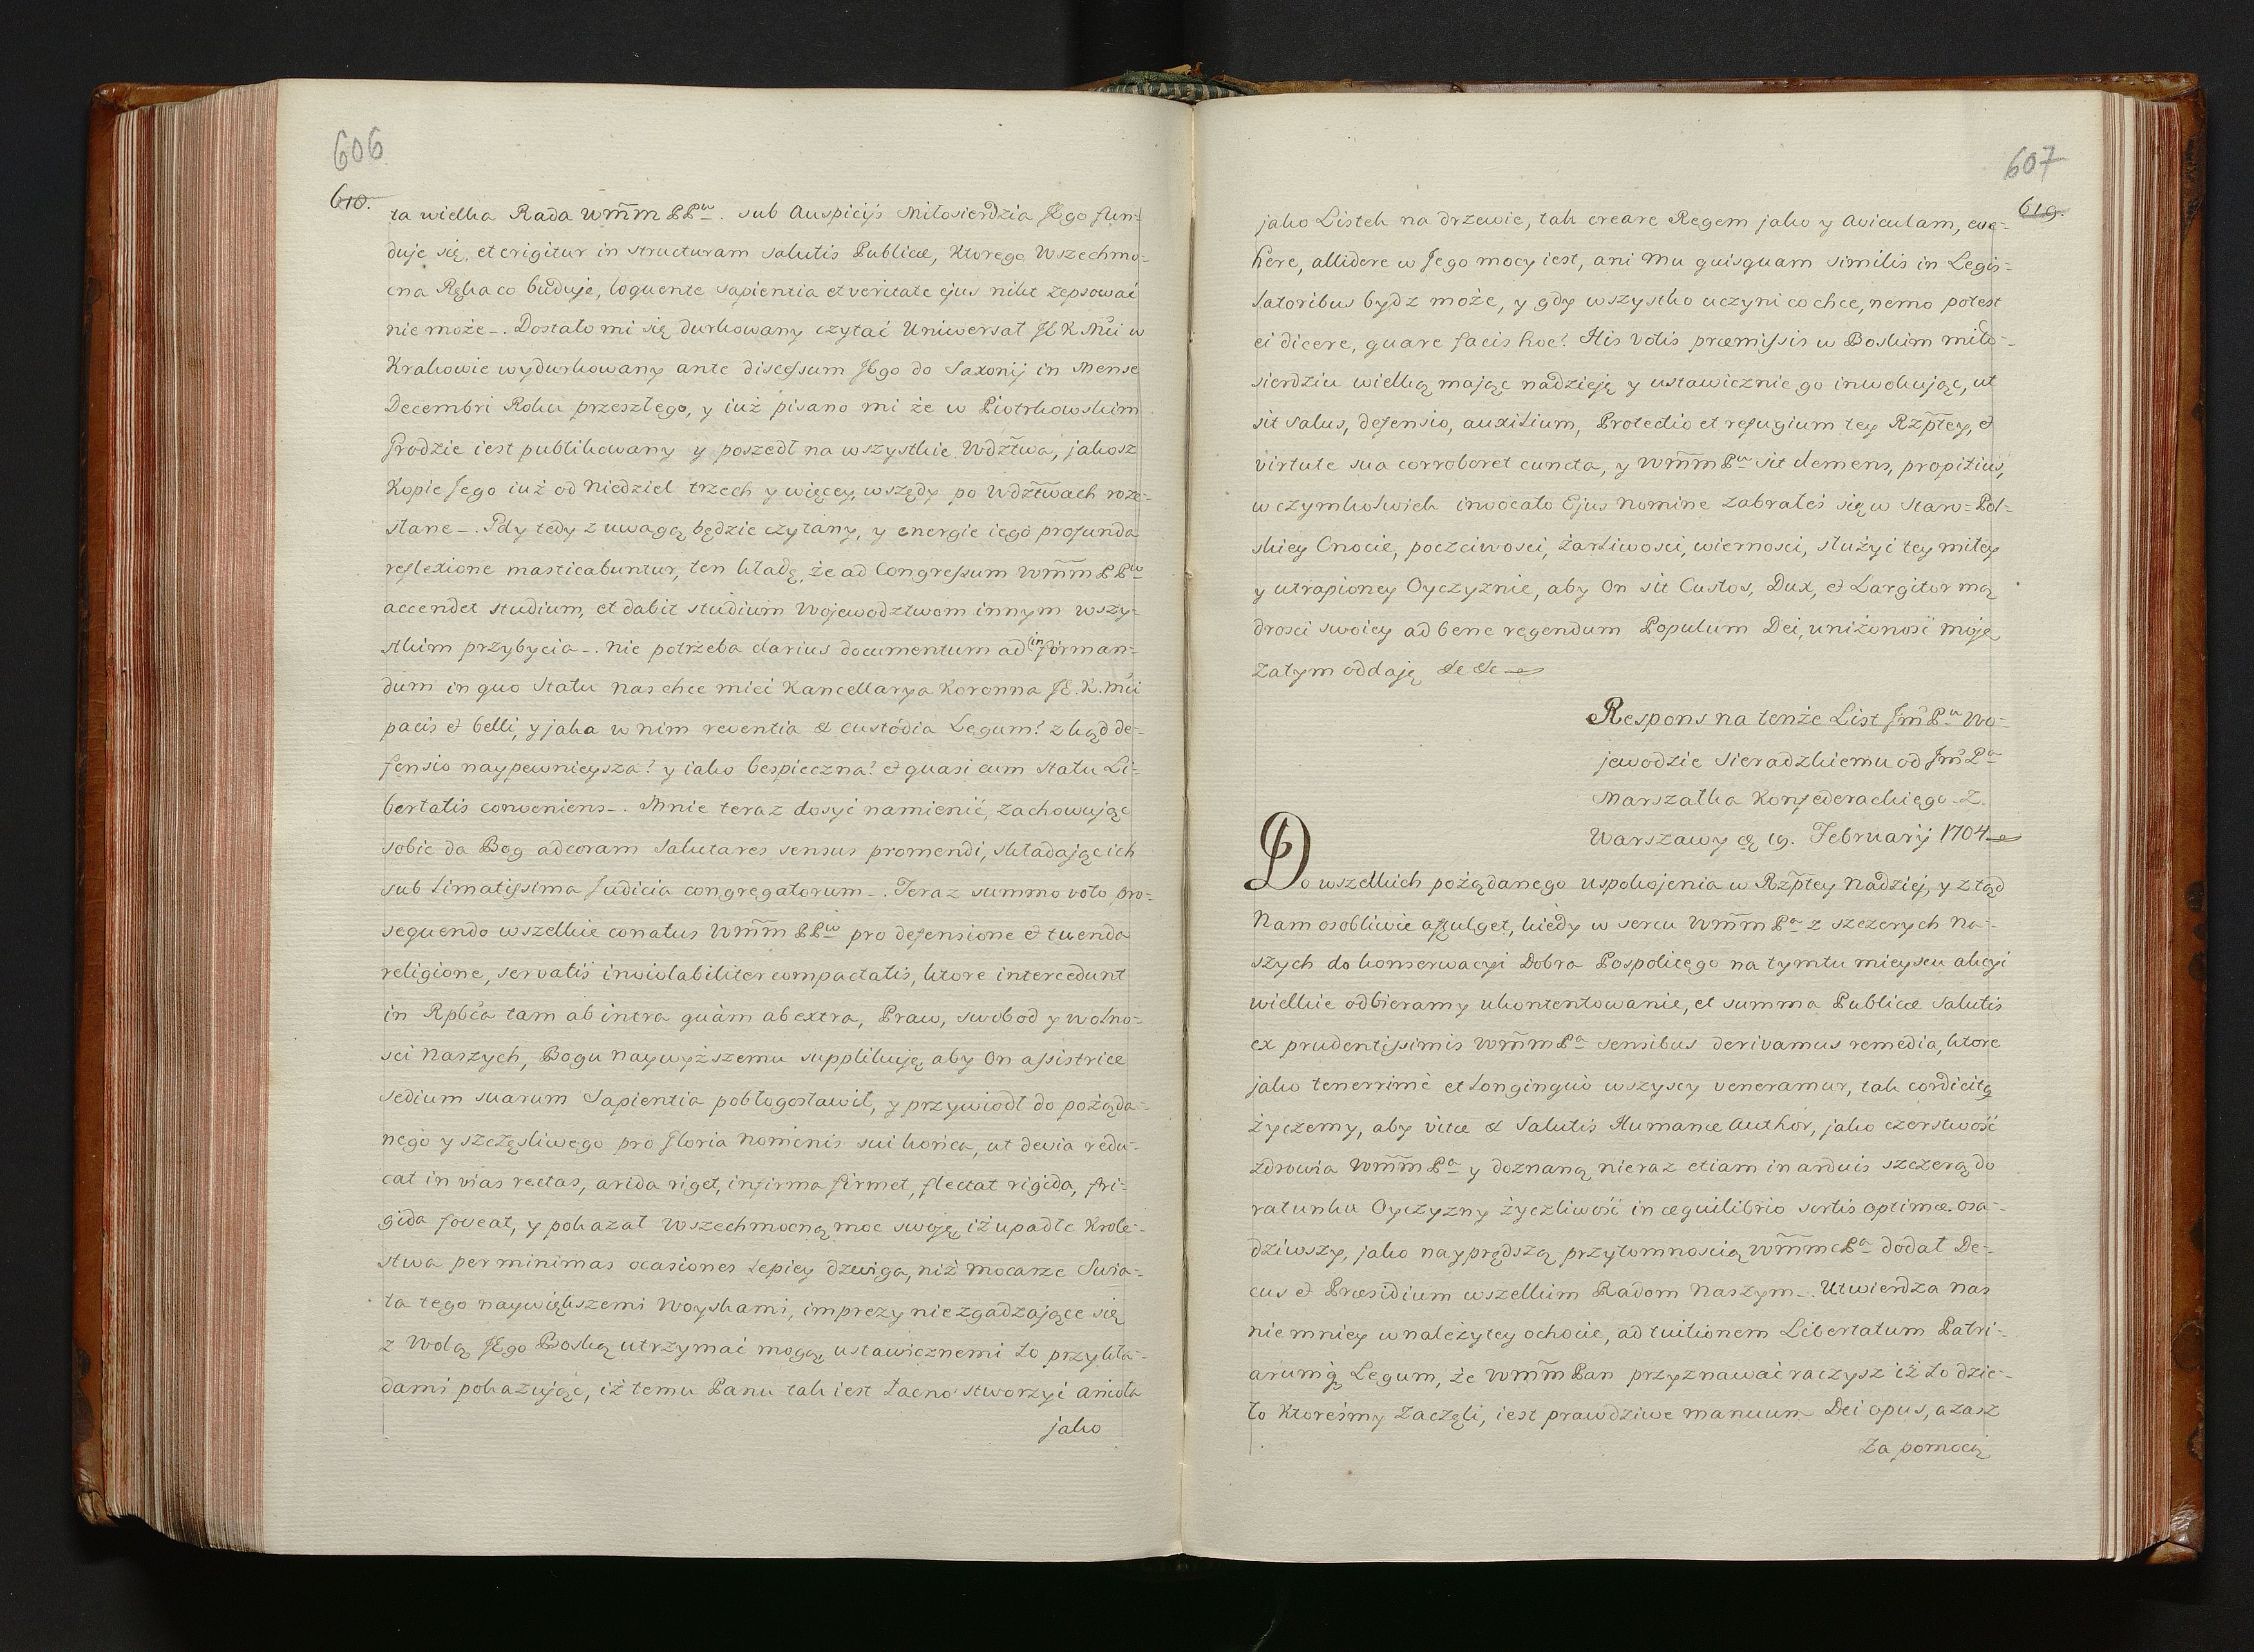 606
610.
ta wielka Rada Wm̃m PPw. sub Auspicijs Miłosierdzia JEgo fun-
duje się, et erigitur in structuram salutis Publicæ, Ktorego Wszechmo-
cna Ręka co buduje, loquente sapientia et veritate ejus nikt zepsować
nie może_. Dostało mi się durkowany czytać Uniwersał JE K Mći w
Krakowie wydurkowany ante discessum JEgo do Saxonij in Mense
Decembri Roku przeszłego, y iuż pisano mi że w Piotrkowskim
Grodzie iest publikowany y poszedł na wszystkie Wdztwa, jakosz
Kopie Jego iuż od Niedziel trzech y więcey, wszędy po Wdztwach roze-
słane_. Gdy tedy z uwagą będzie czytany, y energie iego profunda
reflexione masticabuntur, ten kładę, że ad Congressum Wm̃m PPw
accendet studium, et dabit studium Wojewodztwom innym wszy-
stkim przybycia_. nie potrzeba clarius documentum ad informan-
dum in quo Statu nas chce mieć Kancellarya Koronna JE. K. Mći
pacis et belli, y jaka w nim reventia et custódia Legum? zkąd de-
fensio naypewnieysza? y iako bespieczna? et quasi cum Statu Li-
bertatis conveniens_. Mnie teraz dosyć namienić, zachowując
sobie da Bog adcoram Salutares sensus promendi, składając ich
sub limatissima Judicia congregatorum_. Teraz summo voto pro-
sequendo wszelkie conatus Wm̃m PPw pro defensione et tuenda
religione, servatis inviolabiliter compactatis, ktore intercedunt
in Rpbca tam ab intra quàm ab extra, Praw, swobod y wolno-
sci Naszych, Bogu naywyższemu supplikuję, aby On assistrice
sedium suarum Sapientia pobłogosławił, y przywiodł do pożąda-
nego y szczęsliwego pro Gloria Nominis sui końca, ut devia redu-
cat in vias rectas, arida riget, infirma firmet, flectat rigida, fri-
gida foveat, y pokazał Wszechmocną moc swoję, iż upadłe Krole-
stwa per minimas ocasiones lepiey dzwiga, niż Mocarze Swia-
ta tego naywiększemi Woyskami, imprezy nie zgadzające się
z Wolą JEgo Boską utrzymać mogą, ustawicznemi to przykła-
dami pokazując, iż temu Panu tak iest łacno stworzyć anioła
jako
607
619.
jako Listek na drzewie, tak creare Regem jako y Aviculam, eve-
here, allidere w Jego mocy iest, ani Mu quisquam similis in Legis-
latoribus bydz może, y gdy wszystko uczyni co chce, nemo potest
ei dicere, quare facis hoc? His Votis præmissis w Boskim miło-
sierdziu wielką mając nadzieję y ustawicznie go inwokując, ut
sit Salus, defensio, auxilium, Protectio et refugium tey Rzptey, et
virtute sua corroboret cuncta, y Wm̃m Pu sit clemens, propitius,
w czymkolwiek invocato Ejus Nomine zabrałeś się w Staro-Pol-
skiey Cnocie, poczciwosci, żarliwosci, wiernosci, służyć tey miłey
y utrapioney Oyczyznie, aby On sit Custos, Dux, et Largitor mą
drosci swoiey ad bene regendum Populum Dei, uniżoność moję
zatym oddaję &c &c
Respons na tenże List Jm̃ Pu Wo-
jewodzie Sieradzkiemu od Jm̃ Pa
Marszałka Konfederackiego. Z.
Warszawy D 19. February 1704
Do wszelkich pożądanego uspokojenia w Rzptey Nadziej, y ztąd
Nam osobliwie affulget, kiedy w sercu Wm̃m Pa z szczerych Na-
szych do konserwacyi Dobra Pospolitego na tymtu mieyscu akcyi
wielkie odbieramy ukontentowanie, et summa Publicæ Salutis
ex prudentissimis Wm̃m Pa sensibus derivamus remedia, ktore
jako tenerrimè et longinquò wszyscy veneramur, tak cordicitq
życzemy, aby vitæ et Salutis Humanæ Authór, jako czerstwość
zdrowia Wm̃m Pa y doznaną nieraz etiam in arduis szczerą do
ratunku Oyczyzny życzliwość in æquilibrio sortis optimæ osa-
dziwszy, jako nayprędszą przytomnością Wm̃m Pa dodał De-
cus et Præsidium wszelkim Radom Naszym_. Utwierdza Nas
nie mniey w należytey ochocie, ad tuitionem Libertatum Patri-
arumq Legum, że Wm̃m Pan przyznawać raczysz iż to dzie-
ło Ktoreśmy zaczęli, iest prawdziwe manuum Dei opus, a zasz
Za pomocą